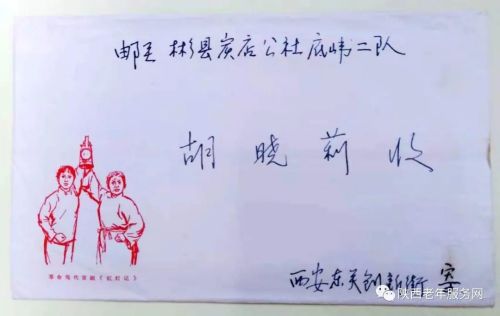 邮至 彬县炭店公社底峁二队
胡晓莉收
革命现代京剧《红灯记》
西安东关创新街 寄
陕西老年服务网